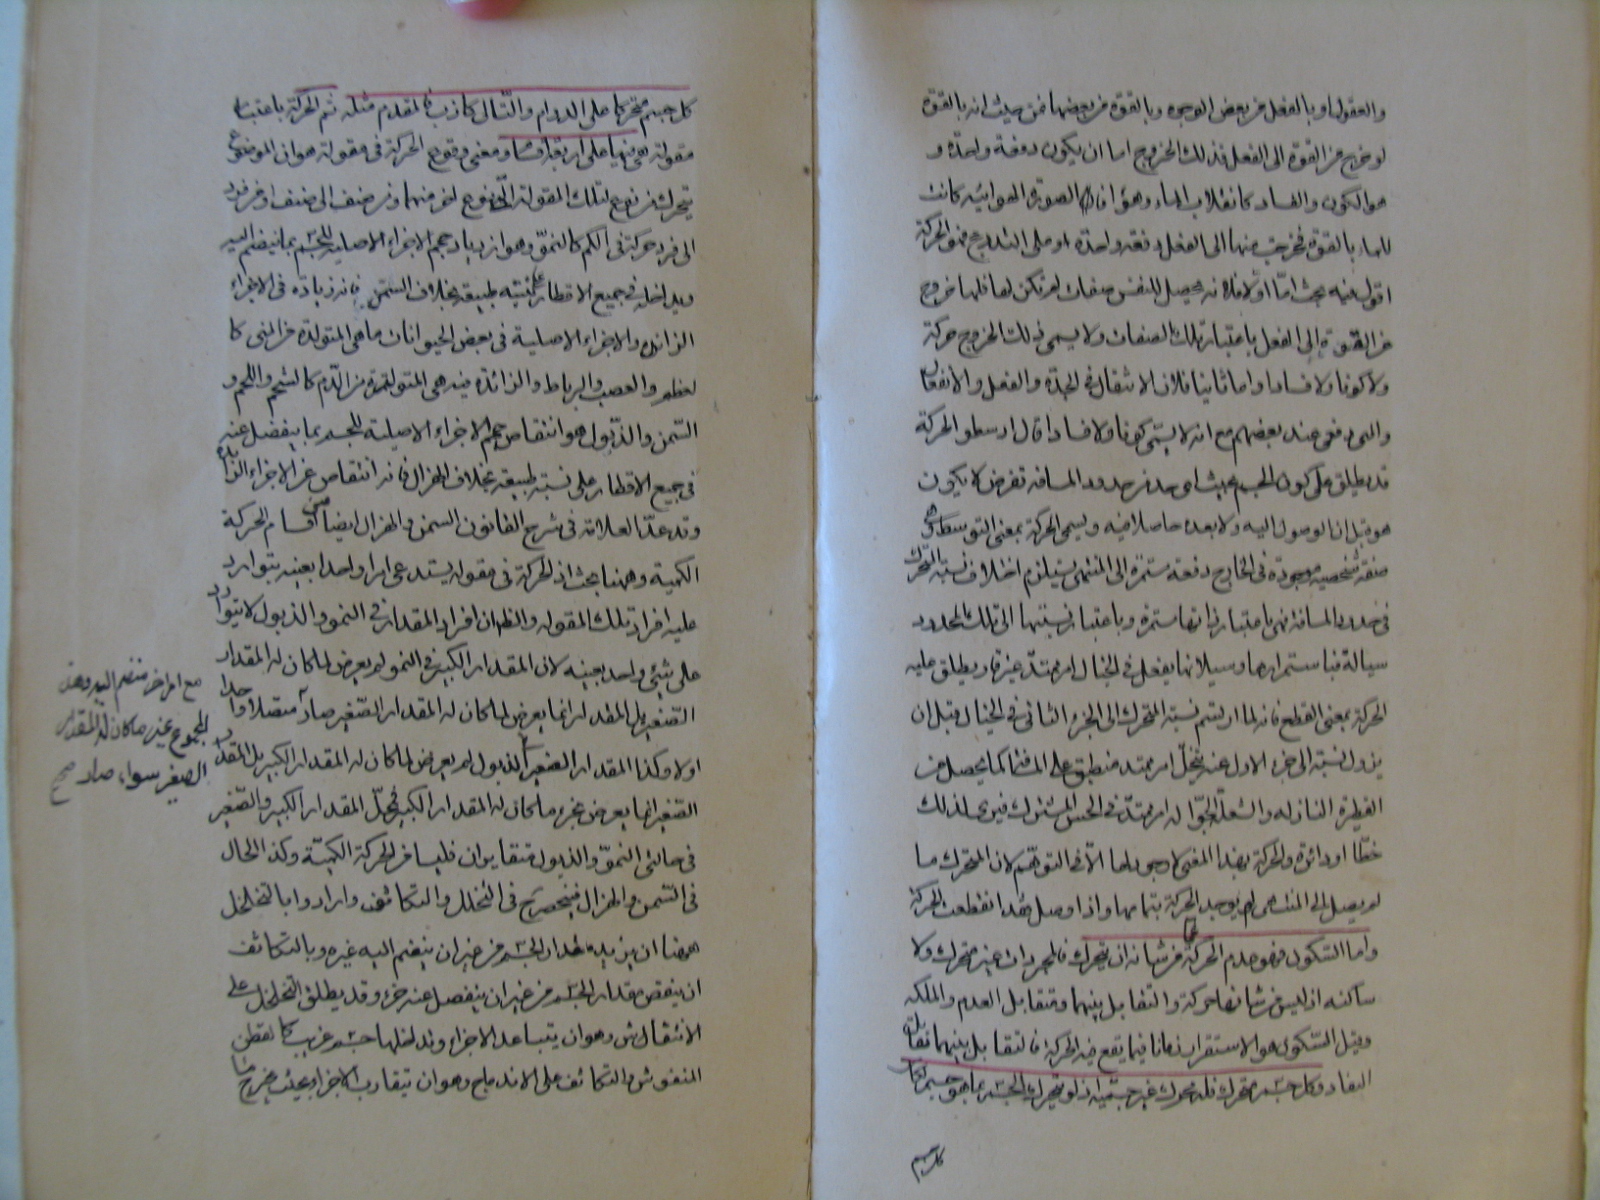 والعقول او بالفعل من بعض الوجوه وبالقوة من بعضها فمن حيث انه بالقوة
لو خرج من القوة الى الفعل فذلك الخروج اما ان يكون دفعة واحدة و
هو الكون والفساد كانقلاب الماء هواء فان الصورة الهوائية كانت
للماء بالقوة فخرجت منها الى الفعل دفعة واحدة او على التدريج فهو الحركة
اقول فيه بحث اما اولا فلانه يحصل للنفس صفات لم تكن لها فلها خروج
من القوة الى الفعل باعتبار تلك الصفات ولا يسمى ذلك الخروج حركة
ولا كونا ولا فسادا واما ثانيا فلان الانتقال في الجدة والفعل والانفعال
والمتى دفعى عند بعضهم مع انه لا يسمى كونا ولا فسادا قال ارسطو الحركة
قد يطلق على كون الجسم بحيث اى حد من حدود المسافة تفرض لا يكون
هو قبل ان الوصول اليه ولا بعده حاصلا فيه ويسمى الحركة بمعنى التوسط وهى
صفة شخصية موجودة فى الخارج دفعة مستمرة الى المنتهى يستلزم اختلاف نسبة المتحرك
فى حدود المسافة فهى باعتبار ذاتها مستمرة وباعتبار نسبتها الى تلك الحدود
سيالة فباستمرارها وسيلانها يفعل فى الخيال امر ممتد غير قار ويطلق عليه
الحركة بمعنى القطع فانه لما ارتسم نسبة المتحرك الى الجزء الثانى فى الخيال قبل ان
يزول نسبته الى جزء الاول عنه يتخيل امر ممتد منطبق على المسافة كما يحصل من
القطرة النازلة والشعلة الجوالة امر ممتد فى الحس المشترك فيرى لذلك
خطا او دائرة والحركة بهذا المعنى لا وجود لها الا فى التوهم لان المتحرك ما
لم يصل الى المنتهى لم يوجد الحركة بتمامها واذا وصل فقد انقطعت الحركة
واما السكون فهو عدم الحركة عما من شانه ان يتحرك فالمجردات غير متحركة ولا
ساكنة اذ ليس من شانها الحركة والتقابل بينهما تقابل العدم والملكة
وقيل السكون هو الاستقرار زمانا فيما يقع فيه الحركة فالتقابل بينهما تقابل
التضاد وكل جسم متحرك فله محرك غير جسمية اذ لو تحرك الجسم بما هو جسم لكان
كل جسم
كل جسم متحركا على الدوام والتالى كاذب فالمقدم مثله ثم الحركة باعتبار
مقولة هى فيها على اربعة اقسام ومعنى وقوع الحركة فى مقولة هو ان الموضوع
يتحرك من نوع لتلك المقولة الى نوع اخر منها ومن صنف الى صنف او من فرد
الى فرد حركة فى الكم كالنمو وهو ازدياد حجم الاجزاء الاصلية للجسم بما ينضم اليه
ويداخله فى جميع الاقطار على نسبة طبيعية بخلاف السمن فانه زيادة فى الاجزاء
الزائدة والاجزاء الاصلية فى بعض الحيوانات ما هى المتولدة من المنى كا
لعظم والعصب والرباط والزائدة فيه هى المتولدة من الدم كالشحم واللحم و
السمن والذبول هو انتقاص حجم الاجزاء الاصلية للجسم بما ينفصل عنه
فى جميع الاقطار على نسبة طبيعية بخلاف الهزال فانه انتقاص عن الاجزاء الزائدة
وقد عد العلامة فى شرح القانون السمن والهزال ايضا من اقسام الحركة
الكمية وههنا بحث اذ الحركة فى مقولة يستدعى امرا واحدا بعينه يتوارد
عليه افراد تلك المقولة والظاهر ان افراد المقدار فى النمو والذبول لا يتوارد
على شئ واحد بعينه لان المقدار الكبير فى النمو لم يعرض لما كان له المقدار
الصغير بل المقدار انما يعرض لما كان له المقدار الصغير صارا متصلا واحدا
اولا وكذا المقدار الصغير فى الذبول لم يعرض لما كان له المقدار الكبير بل المقدار
الصغير انما يعرض بجزء ما كان له المقدار الكبير فمحل المقدار الكبير والصغير
فى حالتى النمو والذبول متغايران فليسا من الحركة الكمية وكذا الحال
فى السمن والهزال فينحصر فى التخلخل والتكاثف وارادوا بالتخلخل
ههنا ان يزيد مقدار الجسم من غير ان ينضم اليه غيره وبالتكاثف
ان ينقص مقدار الجسم من غير ان ينفصل عنه جزء وقد يطلق التخلخل على
الانتفاش وهو ان يتباعد الاجزاء ويداخلها جسم غريب كالقطن
المنفوش والتكاثف على الاندماج وهو ان يتقارب الاجزاء بحيث يخرج ما
مع امر اخر منضم اليه وهذا
المجموع غير ما كان له المقدار
الصغير سواء صار صح